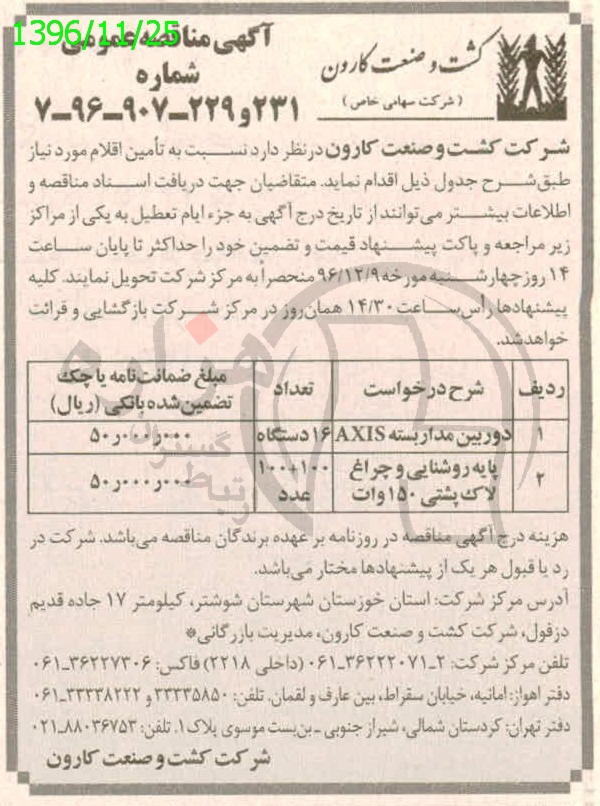 1396/11/25
آگهی مناقصه عمومی
شماره
۲۳۱و۲۲۹ـ۹۰۷ـ۹۶ـ۷
کشت و صنعت کارون
(شرکت سهامی خاص)
شرکت کشت و صنعت کارون در نظر دارد نسبت به تأمین اقلام مورد نیاز
طبق شرح جدول ذیل اقدام نماید. متقاضیان جهت دریافت اسناد مناقصه و
اطلاعات بیشتر می‌توانند از تاریخ درج آگهی به جزء ایام تعطیل به یکی از مراکز
زیر مراجعه و پاکت پیشنهاد قیمت و تضمین خود را حداکثر تا پایان ساعت
۱۴ روز چهارشنبه مورخه ۹۶/۱۲/۹ منحصراً به مرکز شرکت تحویل نمایند. کلیه
پیشنهادها رأس ساعت ۱۴/۳۰ همان‌روز در مرکز شرکت بازگشایی و قرائت
خواهد شد.
ردیف شرح درخواست تعداد مبلغ ضمانت‌نامه یا چک
تضمین شده بانکی (ریال)
۱ دوربین مداربسته AXIS ۱۶ دستگاه ۵۰٫۰۰۰٫۰۰۰
۲ پایه روشنایی و چراغ لاک پشتی ۱۵۰ وات ۱۰۰+۱۰۰ عدد ۵۰٫۰۰۰٫۰۰۰
هزینه درج آگهی مناقصه در روزنامه بر عهده برندگان مناقصه می‌باشد. شرکت در
رد یا قبول هر یک از پیشنهادها مختار می‌باشد.
آدرس مرکز شرکت: استان خوزستان شهرستان شوشتر، کیلومتر ۱۷ جاده قدیم
دزفول، شرکت کشت و صنعت کارون، مدیریت بازرگانی*
تلفن مرکز شرکت: ۲ـ۳۶۲۲۲۰۷۱ـ۰۶۱ (داخلی ۲۲۱۸) فاکس: ۳۶۲۲۷۳۰۶ـ۰۶۱
دفتر اهواز: امانیه، خیابان سقراط، بین عارف و لقمان. تلفن: ۳۳۳۳۵۸۵۰ و ۳۳۳۳۸۲۲۲ـ۰۶۱
دفتر تهران: کردستان شمالی، شیراز جنوبی ـ بن‌بست موسوی پلاک ۱. تلفن: ۸۸۰۳۶۷۵۳ـ۰۲۱
شرکت کشت و صنعت کارون